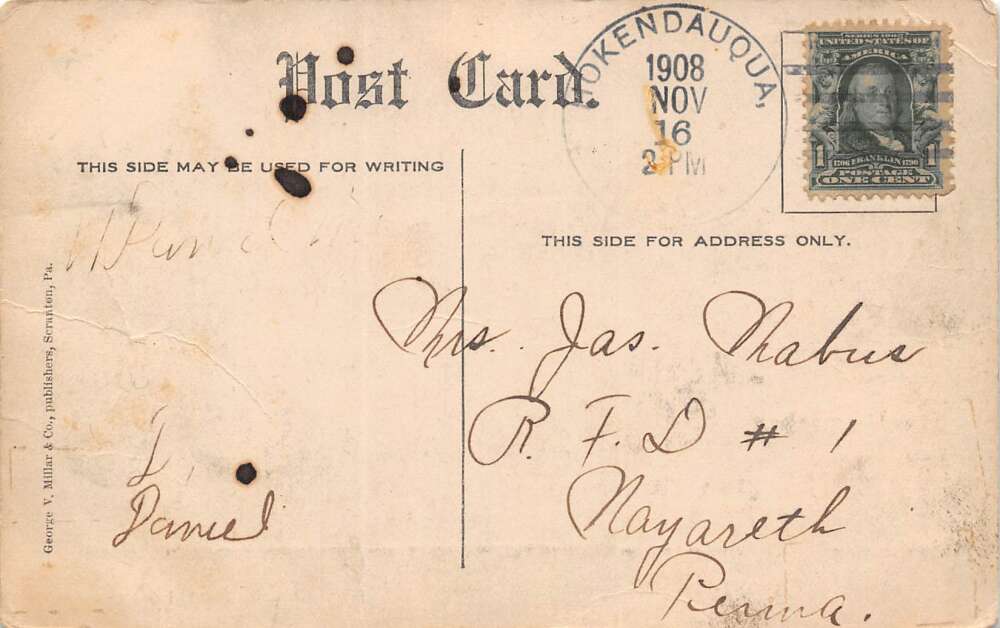 Post Card.
HOKENDAUQUA,
1908
NOV
16
2 PM
SERIES 1902
UNITED STATES OF
AMERICA
1 1706 FRANKLIN 1790 1
POSTAGE
ONE CENT
THIS SIDE MAY BE USED FOR WRITING
THIS SIDE FOR ADDRESS ONLY.
George V. Millar & Co., publishers, Scranton, Pa.
Mrs. Jas. Mabus
R. F. D # 1
Nazareth
Penna.
Daniel